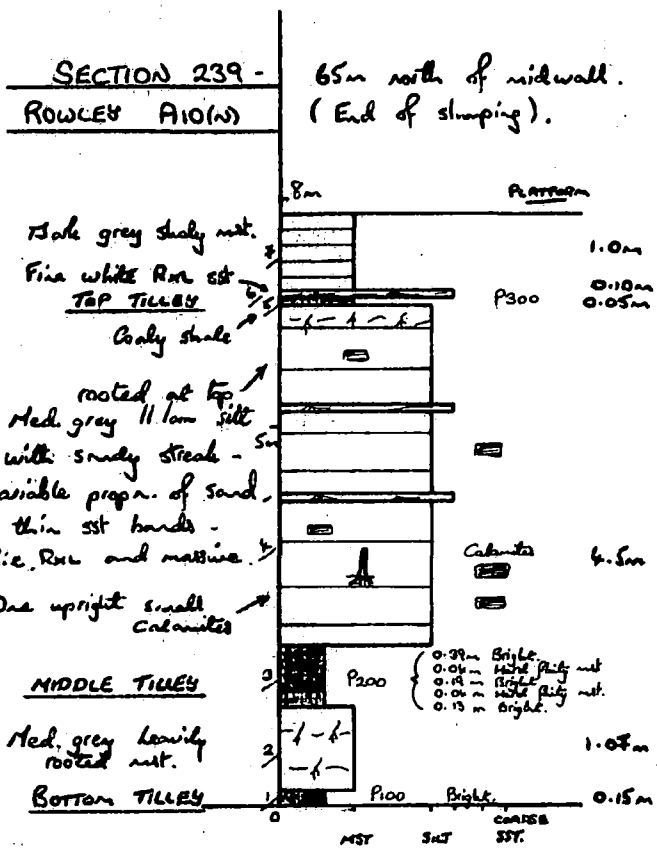 SECTION 239 -
ROWLEY A10(N)
65m north of midwall.
(End of slumping).
8m
PLATFORM
Dark grey shaly mst.
7
1.0m
Fine white RxL sst
6
0.10m
TOP TILLEY
5
P300
0.05m
Coaly shale
rooted at top
Med. grey // lam silt
5m
with sandy streak -
variable propn. of sand,
thin sst bands -
RxL and massive.
4
Calamites
4.5m
One upright small
Calamites
MIDDLE TILLEY
3
P200
0.39m Bright.
0.04m Hard flinty mst
0.19m Bright.
0.04m Hard flinty mst.
0.13 m Bright.
Med. grey heavily
rooted mst.
2
1.07m
BOTTOM TILLEY
1
P100
Bright.
0.15m
0
MST
SILT
COARSE
SST.